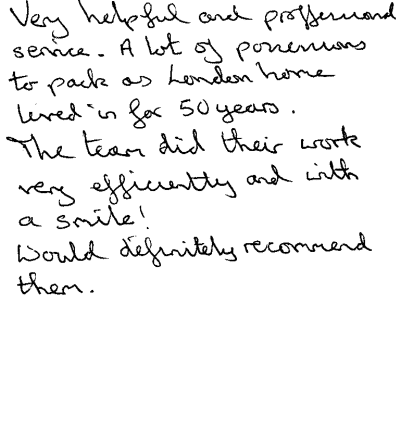 Very helpful and proffessional
service. A lot of possessions
to pack as London home
lived in for 50 years.
The team did their work
very efficiently and with
a smile!
Would definitely recommend
them.